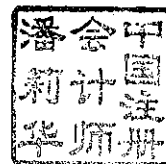 中国注册
会计师
潘莉华